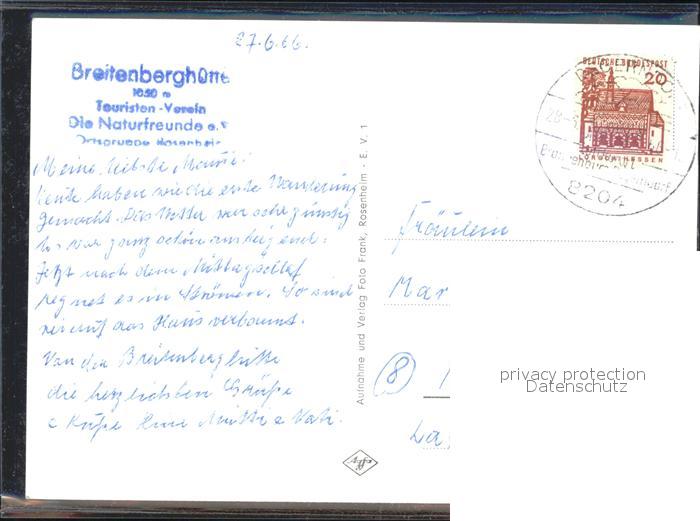 27.6.66.
Breitenberghütte
1050 m
Touristen-Verein
Die Naturfreunde e.V
Ortsgruppe Rosenheim
Meine liebste Mausi!
Heute haben wir die erste Wanderung
gemacht. Das Wetter war sehr günstig
es war ganz schön ansteigend.
Jetzt nach dem Mittagschlaf
regnet es in Strömen. So sind
wir auf das Haus verbannt.
Von der Breitenberghütte
die herzlichsten Grüße
u Küße Eure Mutti u Vati.
Aufnahme und Verlag Foto Frank, Rosenheim - E. V. 1
Agfa
DEUTSCHE BUNDESPOST
20
LORSCH/HESSEN
28.6
8204
Fräulein
Mar
8
La
privacy protection
Datenschutz